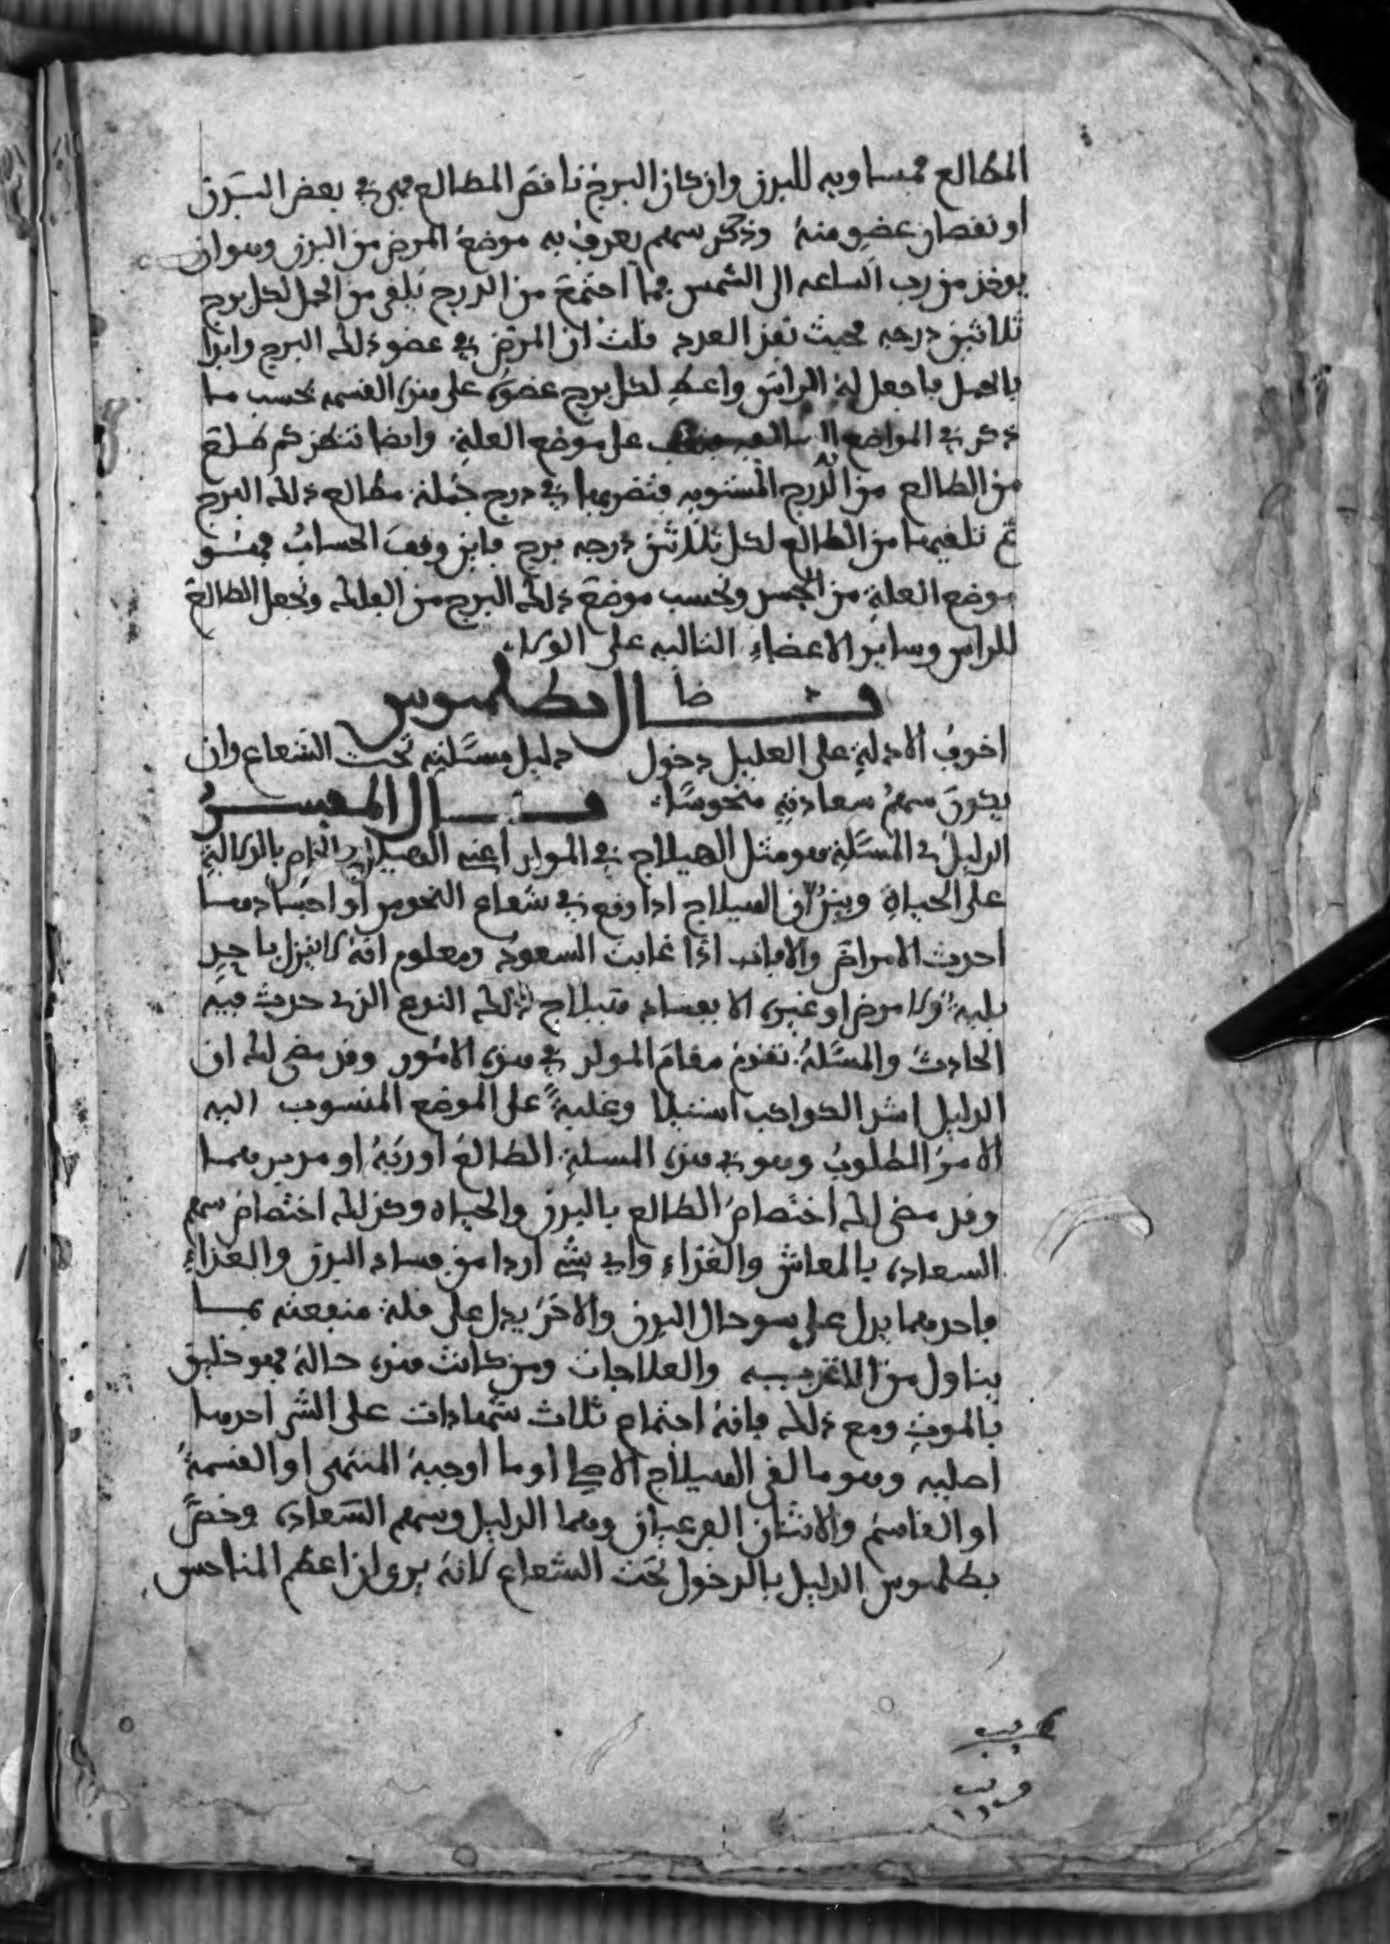 المطالع فمساويه للبدن وان كان البرج ناقص المطالع فهي في بعض البدن
او نقصان عضو منه وذكر سهم يعرف به موضع المرض من البدن وهو ان
يوخذ من رب الساعه الى الشمس فما اجتمع من الدرج تلقى من الحمل لكل برج
ثلاثين درجه فحيث نفد العدد قلت ان المرض في عضو ذلك البرج وابدا
بالحمل فاجعل له الراس واعط لكل برج عضوا على هذه القسمه بحسب ما
ذكر في المواضع على موضع العلة وايضا تنظر كم طلع
من الطالع من الدرج المستويه فتضربها في درج جملة مطالع ذلك البرج
ثم تلقيها من الطالع لكل ثلاثين درجه برج فاين وقف الحساب فهو
موضع العلة من الجسد وتحسب موضع ذلك البرج من الفلك وتجعل الطالع
للراس وساير الاعضاء التاليه على الولاء
قال بطلميوس
اخوف الادلة على العليل دخول دليل مسئلته تحت الشعاع وان
يكون سهم سعادته منحوسا قال المفسر
الدليل في المسئلة هو مثل الهيلاج في المولد اعني الهيلاج الخاص بالدلالة
على الحياة وبين ان الهيلاج اذا وقع في شعاع النحوس او اجسادها
احدث الامراض والافات اذا غابت السعود ومعلوم انه لا ينزل باحد
بلية ولا مرض او غيره الا بفساد هيلاج ذلك النوع الذي حدث فيه
الحادث والمسئلة تقوم مقام المولد في هذه الامور وقد مضى لك ان
الدليل اشد الكواكب استيلا وغلبة على الموضع المنسوب اليه
الامر المطلوب وهو في هذه المسلة الطالع او ربه او مدبرهما
وقد مضى لك اختصاص الطالع بالبدن والحياه وكذلك اختصاص سهم
السعاده بالمعاش والغذاء واي شي اردا من فساد البدن والغذاء
فاحدهما يدل على سو حال البدن والاخر يدل على قلة منفعته بما
يتناول من الاغذيه والعلاجات ومن كانت هذه حالة فهو خليق
بالموت ومع ذلك فانه اجتماع ثلاث شهادات على الشر احدها
اصليه وهو ما لقي الهيلاج الاصلي او ما اوجبه المنتهى او القسمة
او القاسم والاثنتان الفرعيتان وهما الدليل وسهم السعاده وخص
بطلميوس الدليل بالدخول تحت الشعاع لانه يرى ان اعظم المناحس